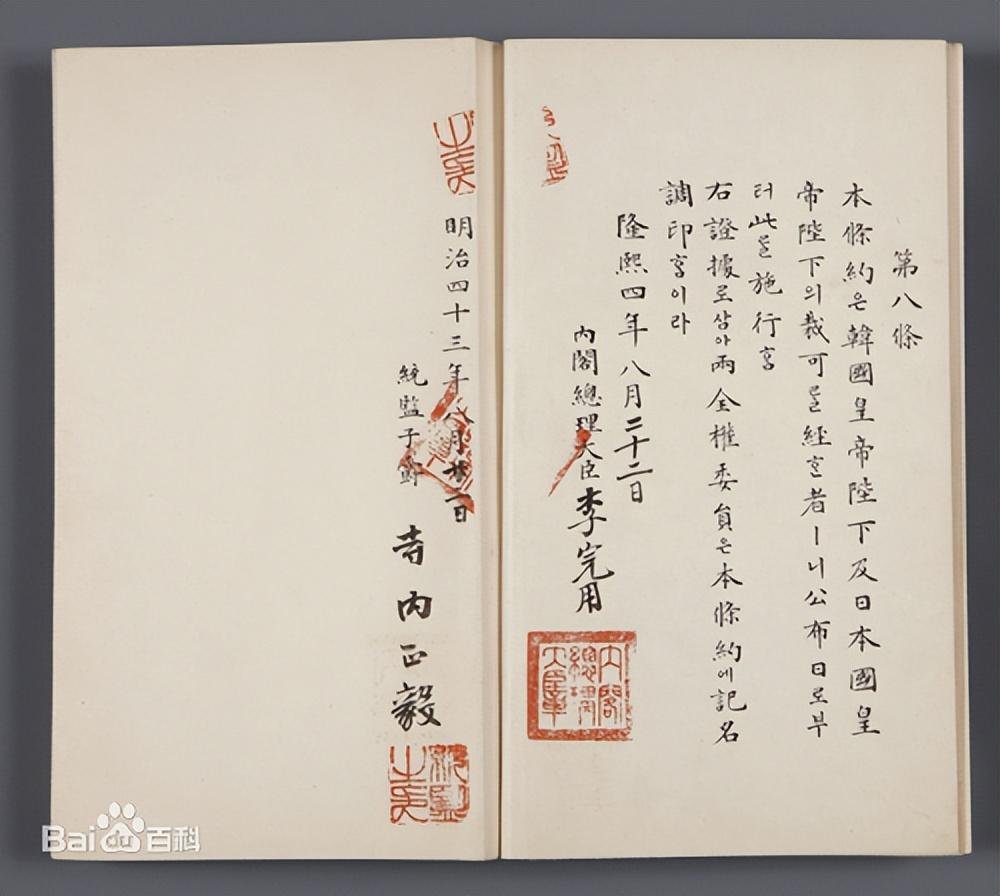 第八條
本條約은韓國皇帝陛下及日本國皇
帝陛下의裁可를經ᄒᆞᆫ者ㅣ니公布日로부
터此를施行ᄒᆞᆷ
右證據로삼아兩全權委員은本條約에記名
調印ᄒᆞᆷ이라
隆熙四年八月二十二日
內閣總理大臣李完用
內閣總理大臣章
明治四十三年八月廿二日
統監子爵 寺内正毅
統監之印
Baidu百科